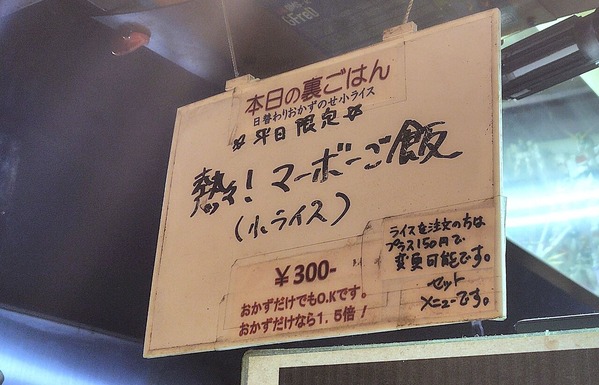 本日の裏ごはん
日替わりおかずのせ小ライス
※平日限定※
熱々!マーボーご飯
(小ライス)
¥300-
おかずだけでもO.Kです。
おかずだけなら1.5倍!
ライスを注文の方は
プラス150円で
変更可能です。
セット
メニューです。